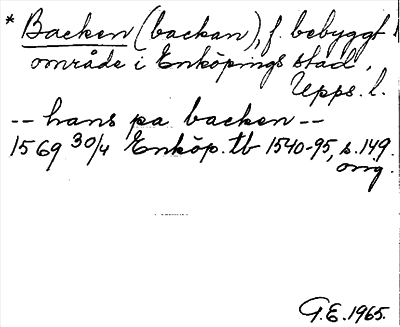 * Backen (backan), f. bebyggt
område i Enköpings stad,
Upps. l.
-- hans pa backen --
1569 30/4 Enköp. tb 1540-95, s. 149.
orig.
G.E. 1965.